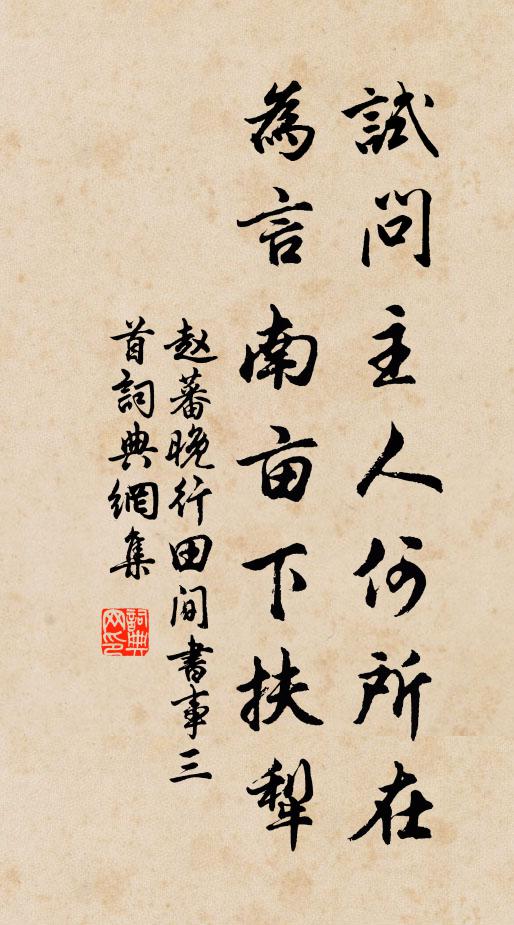 試問主人何所在
為言南亩下扶犁
赵蕃晚行田间書事三
首詞典網集
詞典
网印